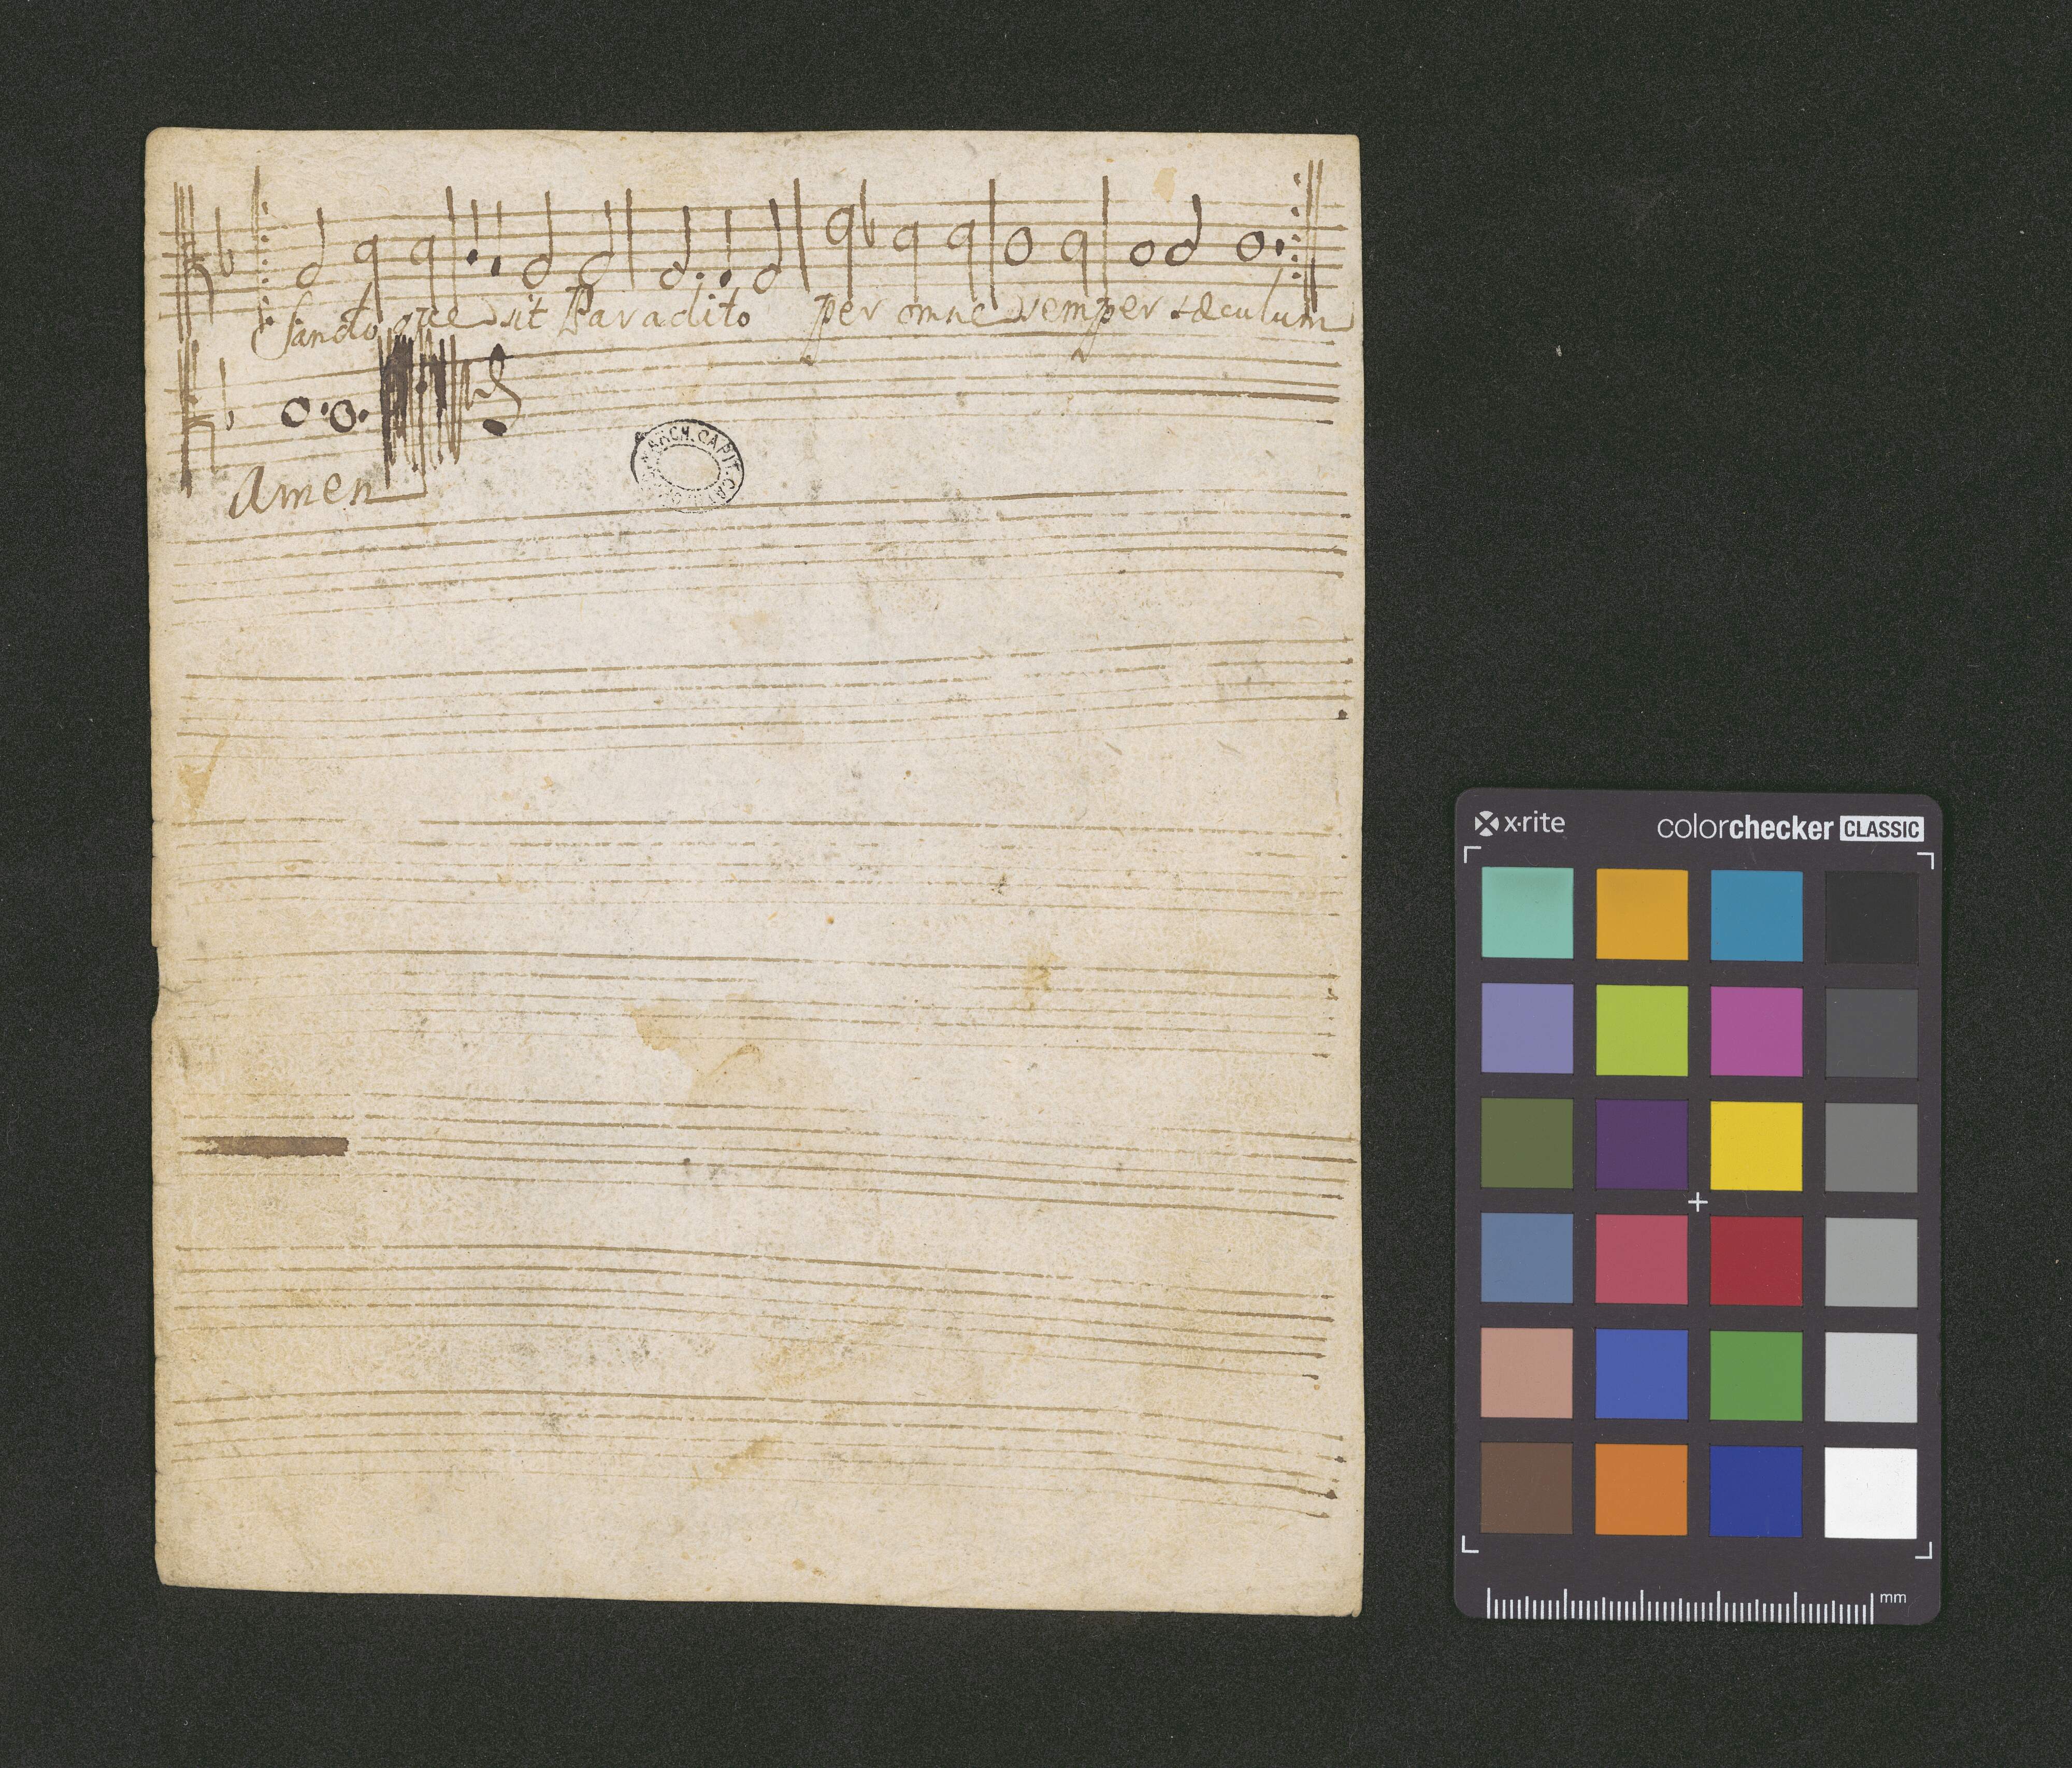 Sancto que sit Paradito per omne semper sæculum
Amen
ARCH. CAPIT.
x·rite
colorchecker CLASSIC
mm